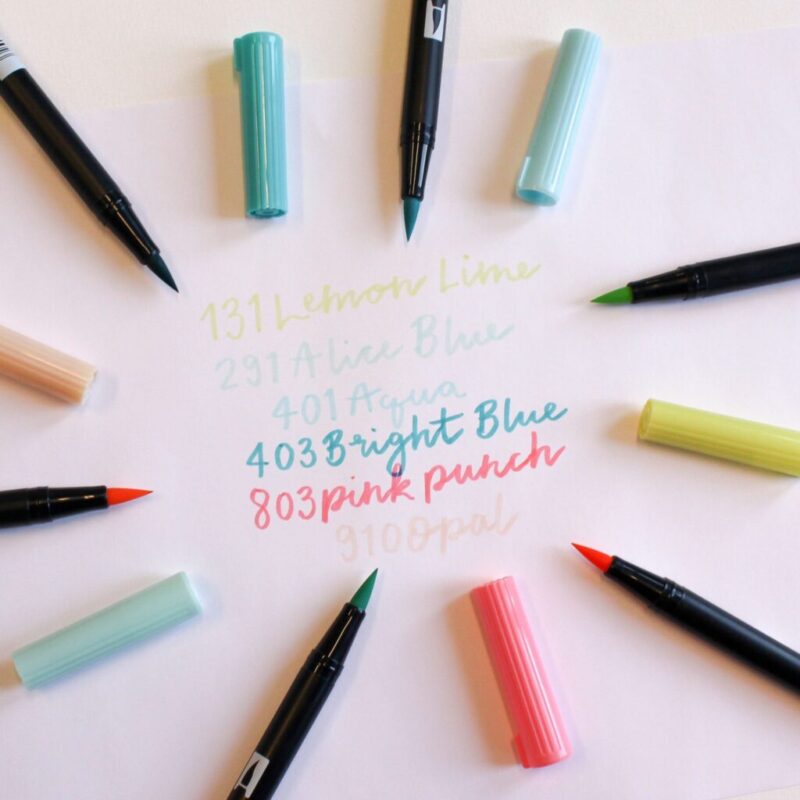 131 Lemon Lime
291 Alice Blue
401 Aqua
403 Bright Blue
803 pink punch
910 Opal